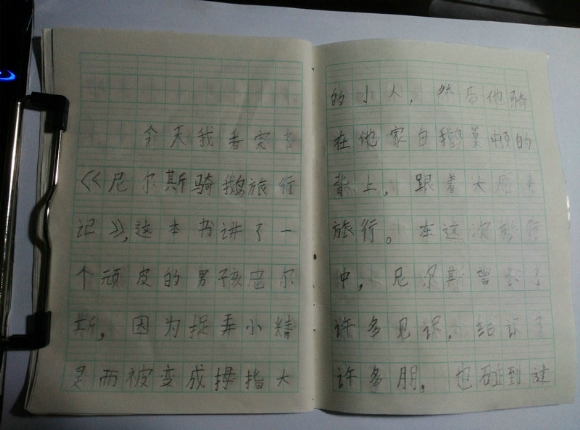 今天我看完了
《尼尔斯骑鹅旅行
记》，这本书讲了一
个顽皮的男孩尼尔
斯，因为捉弄小精
灵而被变成拇指大
的小人，然后他骑
在他家白鹅莫顿的
背上，跟着大雁去
旅行。在这次旅行
中，尼尔斯增长了
许多见识，结识了
许多朋，也碰到过